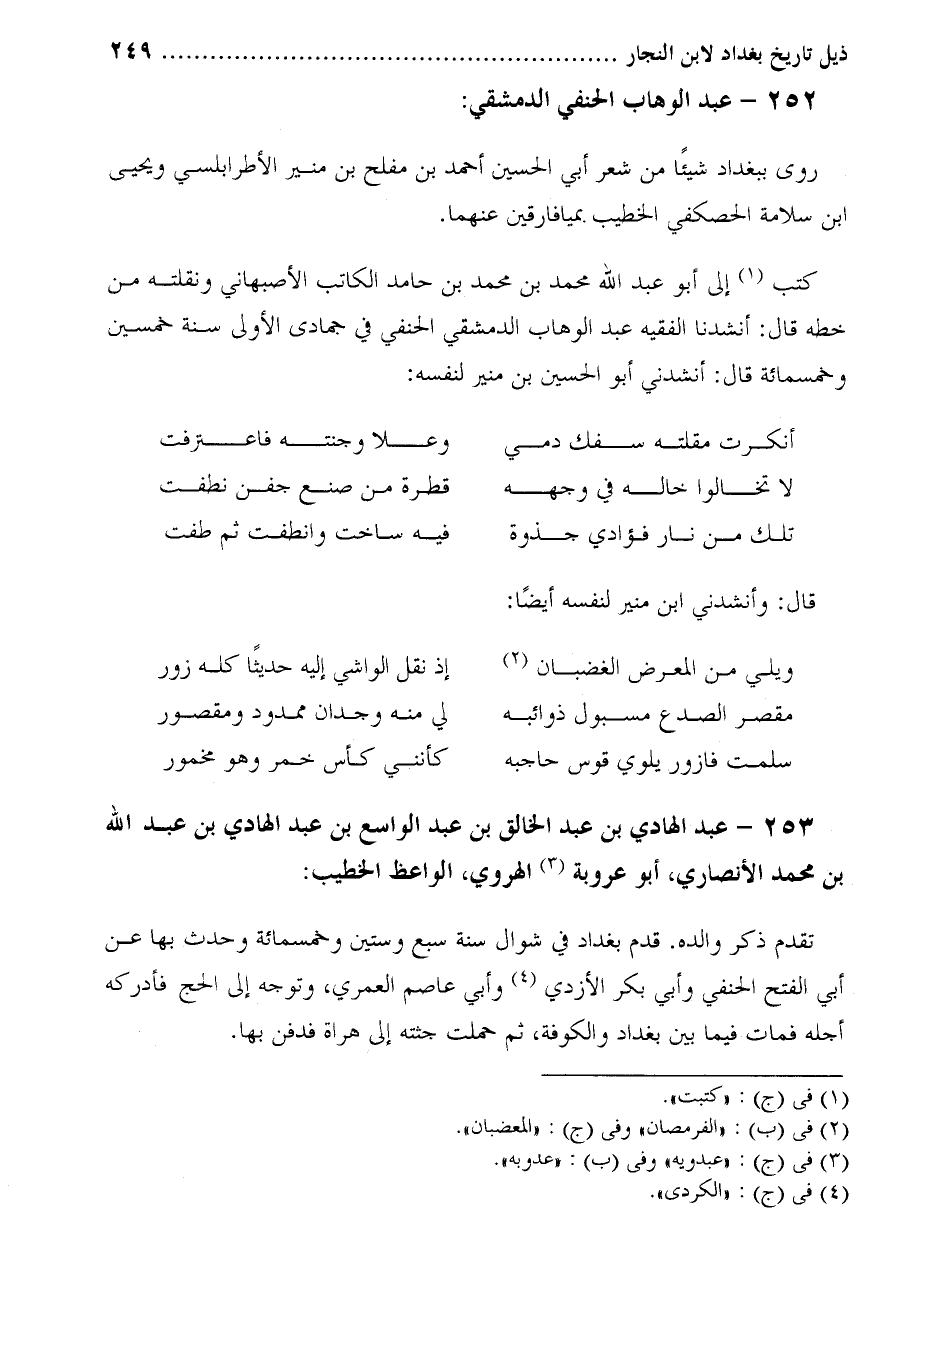 ذيل تاريخ بغداد لابن النجار ........................................................ ٢٤٩
٢٥٢ – عبد الوهاب الحنفي الدمشقي:
روى ببغداد شيئًا من شعر أبي الحسين أحمد بن مفلح بن منير الأطرابلسي ويحيى
ابن سلامة الحصكفي الخطيب بميافارقين عنهما.
كتب (١) إلى أبو عبد الله محمد بن محمد بن حامد الكاتب الأصبهاني ونقلته من
خطه قال: أنشدنا الفقيه عبد الوهاب الدمشقي الحنفي في جمادى الأولى سنة خمسين
وخمسمائة قال: أنشدني أبو الحسين بن منير لنفسه:
أنكرت مقلته سفك دمي وعلا وجنته فاعترفت
لا تخالوا خاله في وجهه قطرة من صنع جفن نطفت
تلك من نار فؤادي جذوة فيه ساخت وانطفت ثم طفت
قال: وأنشدني ابن منير لنفسه أيضًا:
ويلي من المعرض الغضبان (٢) إذ نقل الواشي إليه حديثًا كله زور
مقصر الصدغ مسبول ذوائبه لي منه وجدان ممدود ومقصور
سلمت فازور يلوي قوس حاجبه كأنني كأس خمر وهو مخمور
٢٥٣ – عبد الهادي بن عبد الخالق بن عبد الواسع بن عبد الهادي بن عبد الله
بن محمد الأنصاري، أبو عروبة (٣) الهروي، الواعظ الخطيب:
تقدم ذكر والده. قدم بغداد في شوال سنة سبع وستين وخمسمائة وحدث بها عن
أبي الفتح الحنفي وأبي بكر الأزدي (٤) وأبي عاصم العمري، وتوجه إلى الحج فأدركه
أجله فمات فيما بين بغداد والكوفة، ثم حملت جثته إلى هراة فدفن بها.
(١) فى (ج) : «كتبت».
(٢) فى (ب) : «الفرمصان» وفى (ج) : «المعضبان».
(٣) فى (ج) : «عبدويه» وفى (ب) : «عدوبه».
(٤) فى (ج) : «الكردى».